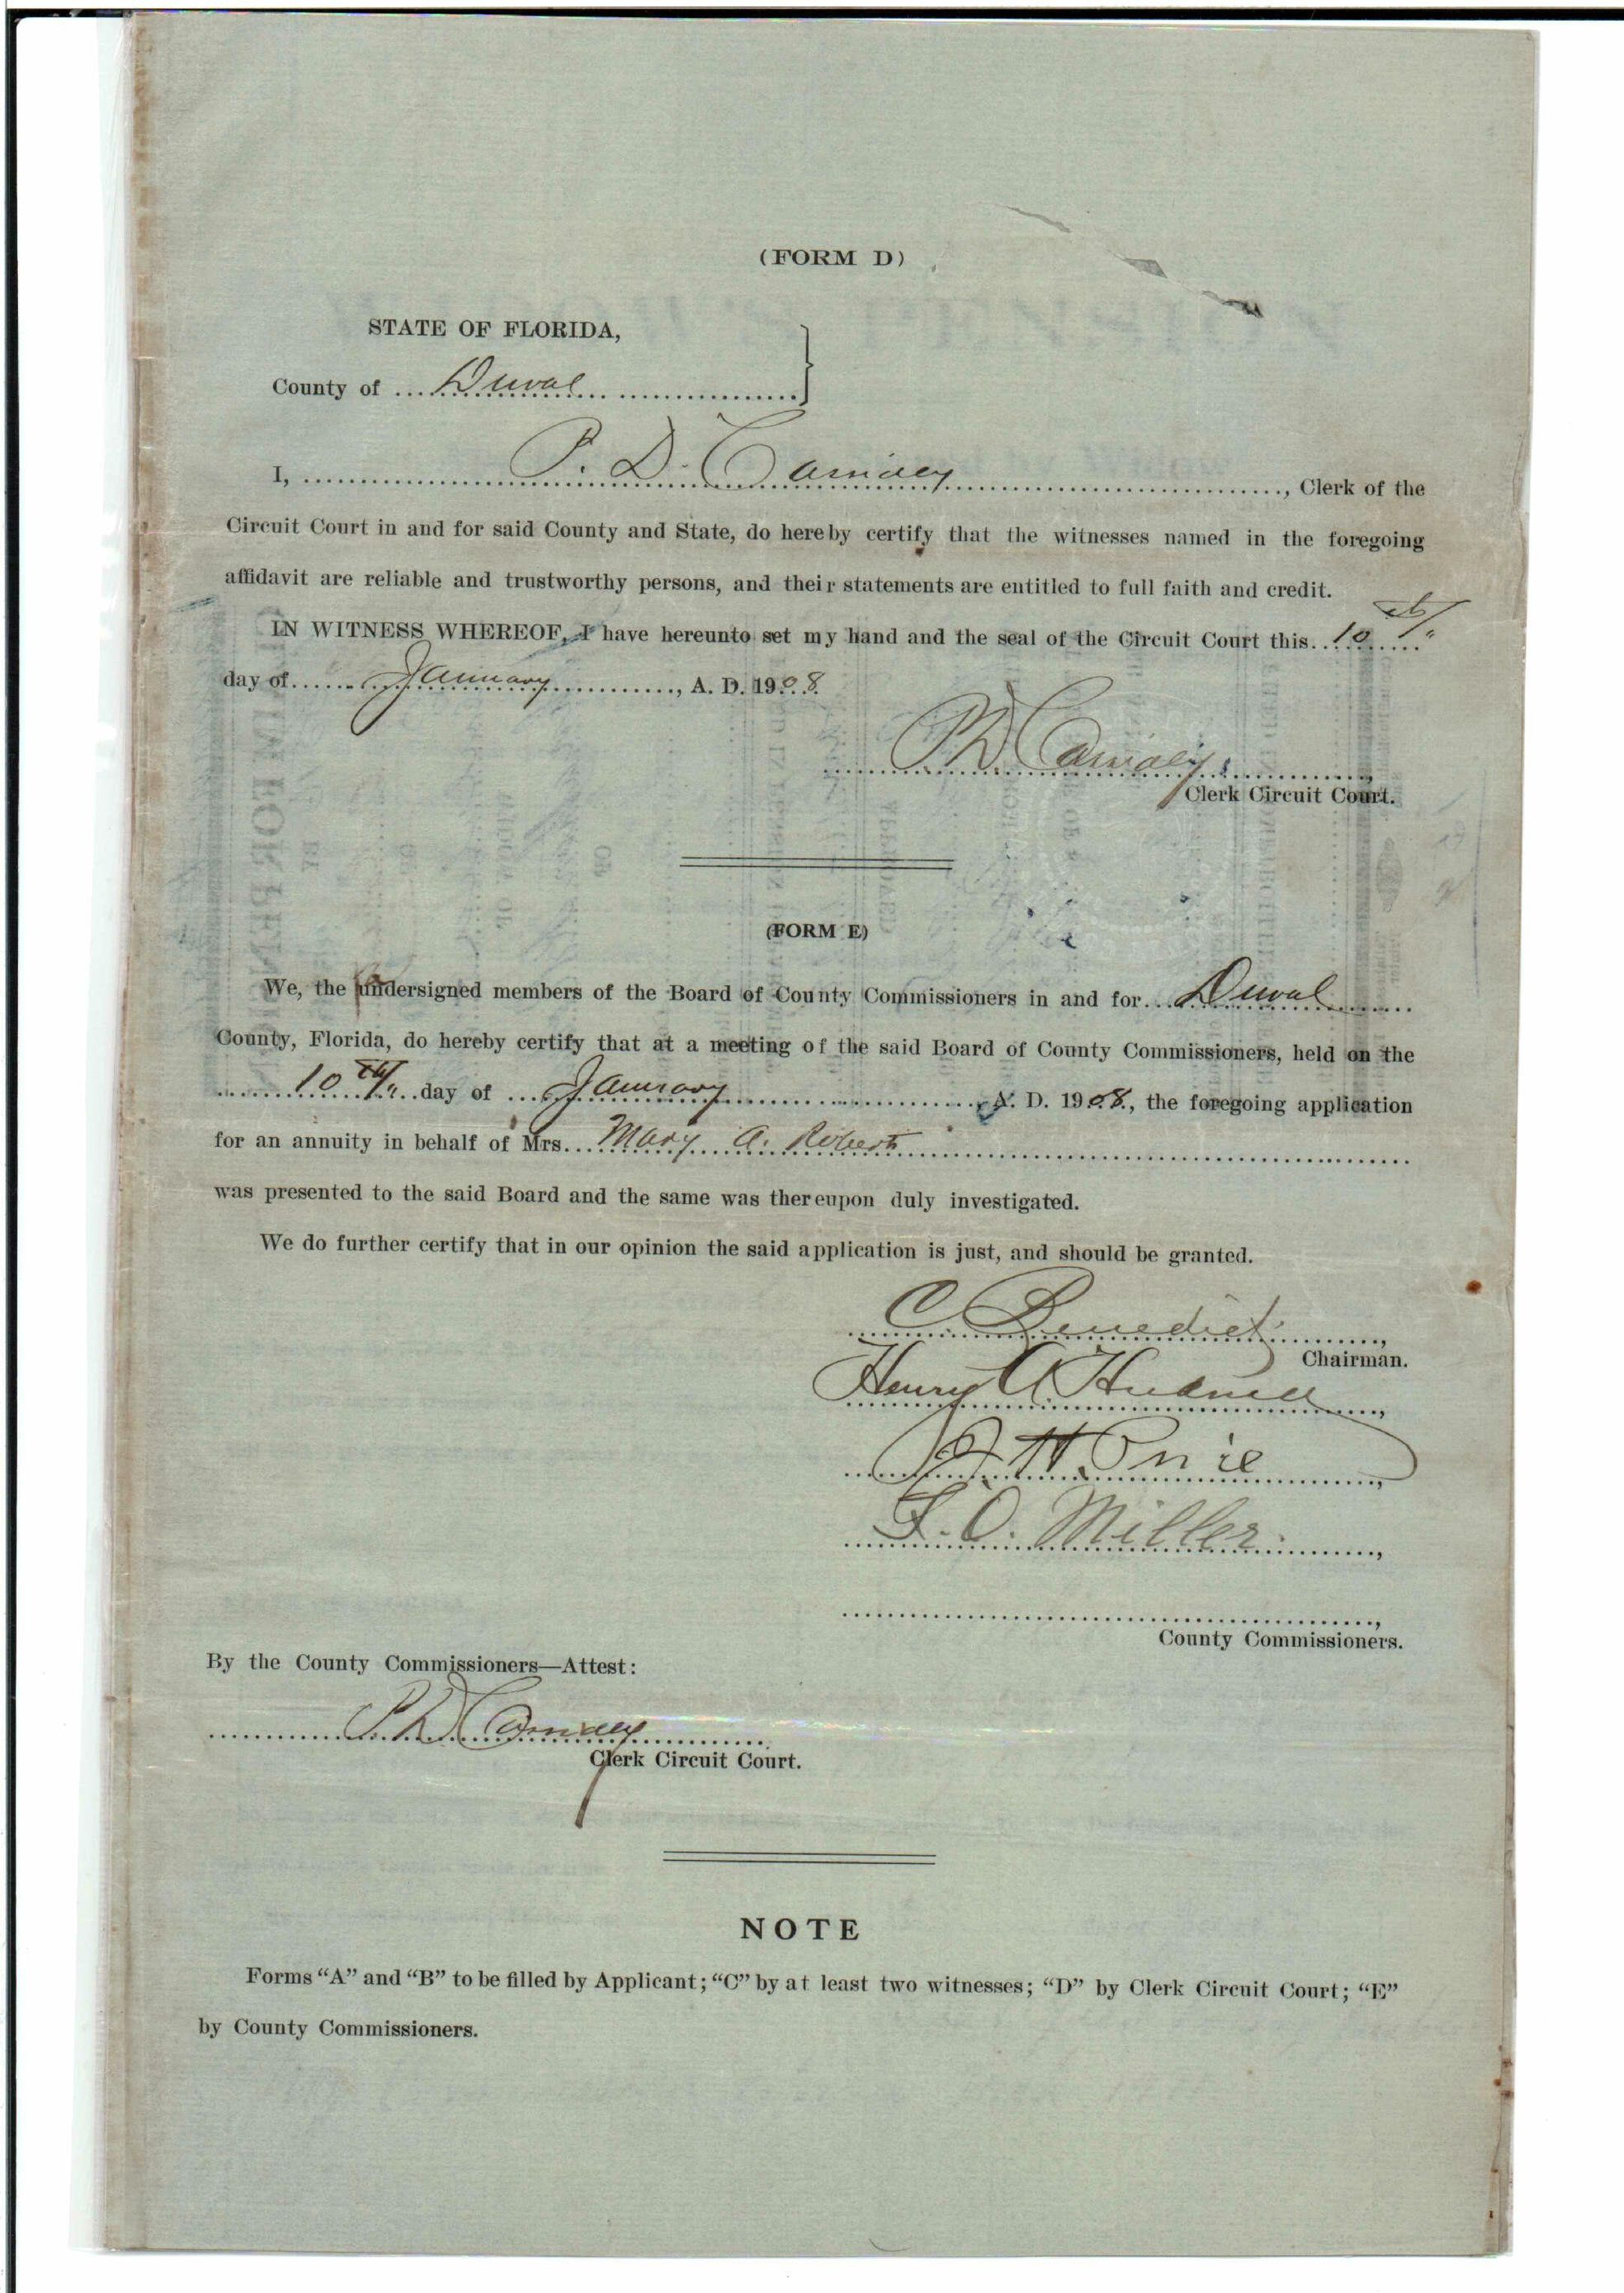 (FORM D)
STATE OF FLORIDA,
County of Duval
I, P. D. Cassidey, Clerk of the
Circuit Court in and for said County and State, do hereby certify that the witnesses named in the foregoing
affidavit are reliable and trustworthy persons, and their statements are entitled to full faith and credit.
IN WITNESS WHEREOF, I have hereunto set my hand and the seal of the Circuit Court this 10th
day of January, A. D. 1908
P D Cassidey,
Clerk Circuit Court.
(FORM E)
We, the undersigned members of the Board of County Commissioners in and for Duval
County, Florida, do hereby certify that at a meeting of the said Board of County Commissioners, held on the
10th day of January A. D. 1908, the foregoing application
for an annuity in behalf of Mrs. Mary A. Roberts
was presented to the said Board and the same was thereupon duly investigated.
We do further certify that in our opinion the said application is just, and should be granted.
C Benedict,
Chairman.
Henry A Hudnall,
J. H. Price,
L. O. Miller,
County Commissioners.
By the County Commissioners—Attest:
P. D Cassidey
Clerk Circuit Court.
NOTE
Forms "A" and "B" to be filled by Applicant; "C" by at least two witnesses; "D" by Clerk Circuit Court; "E"
by County Commissioners.